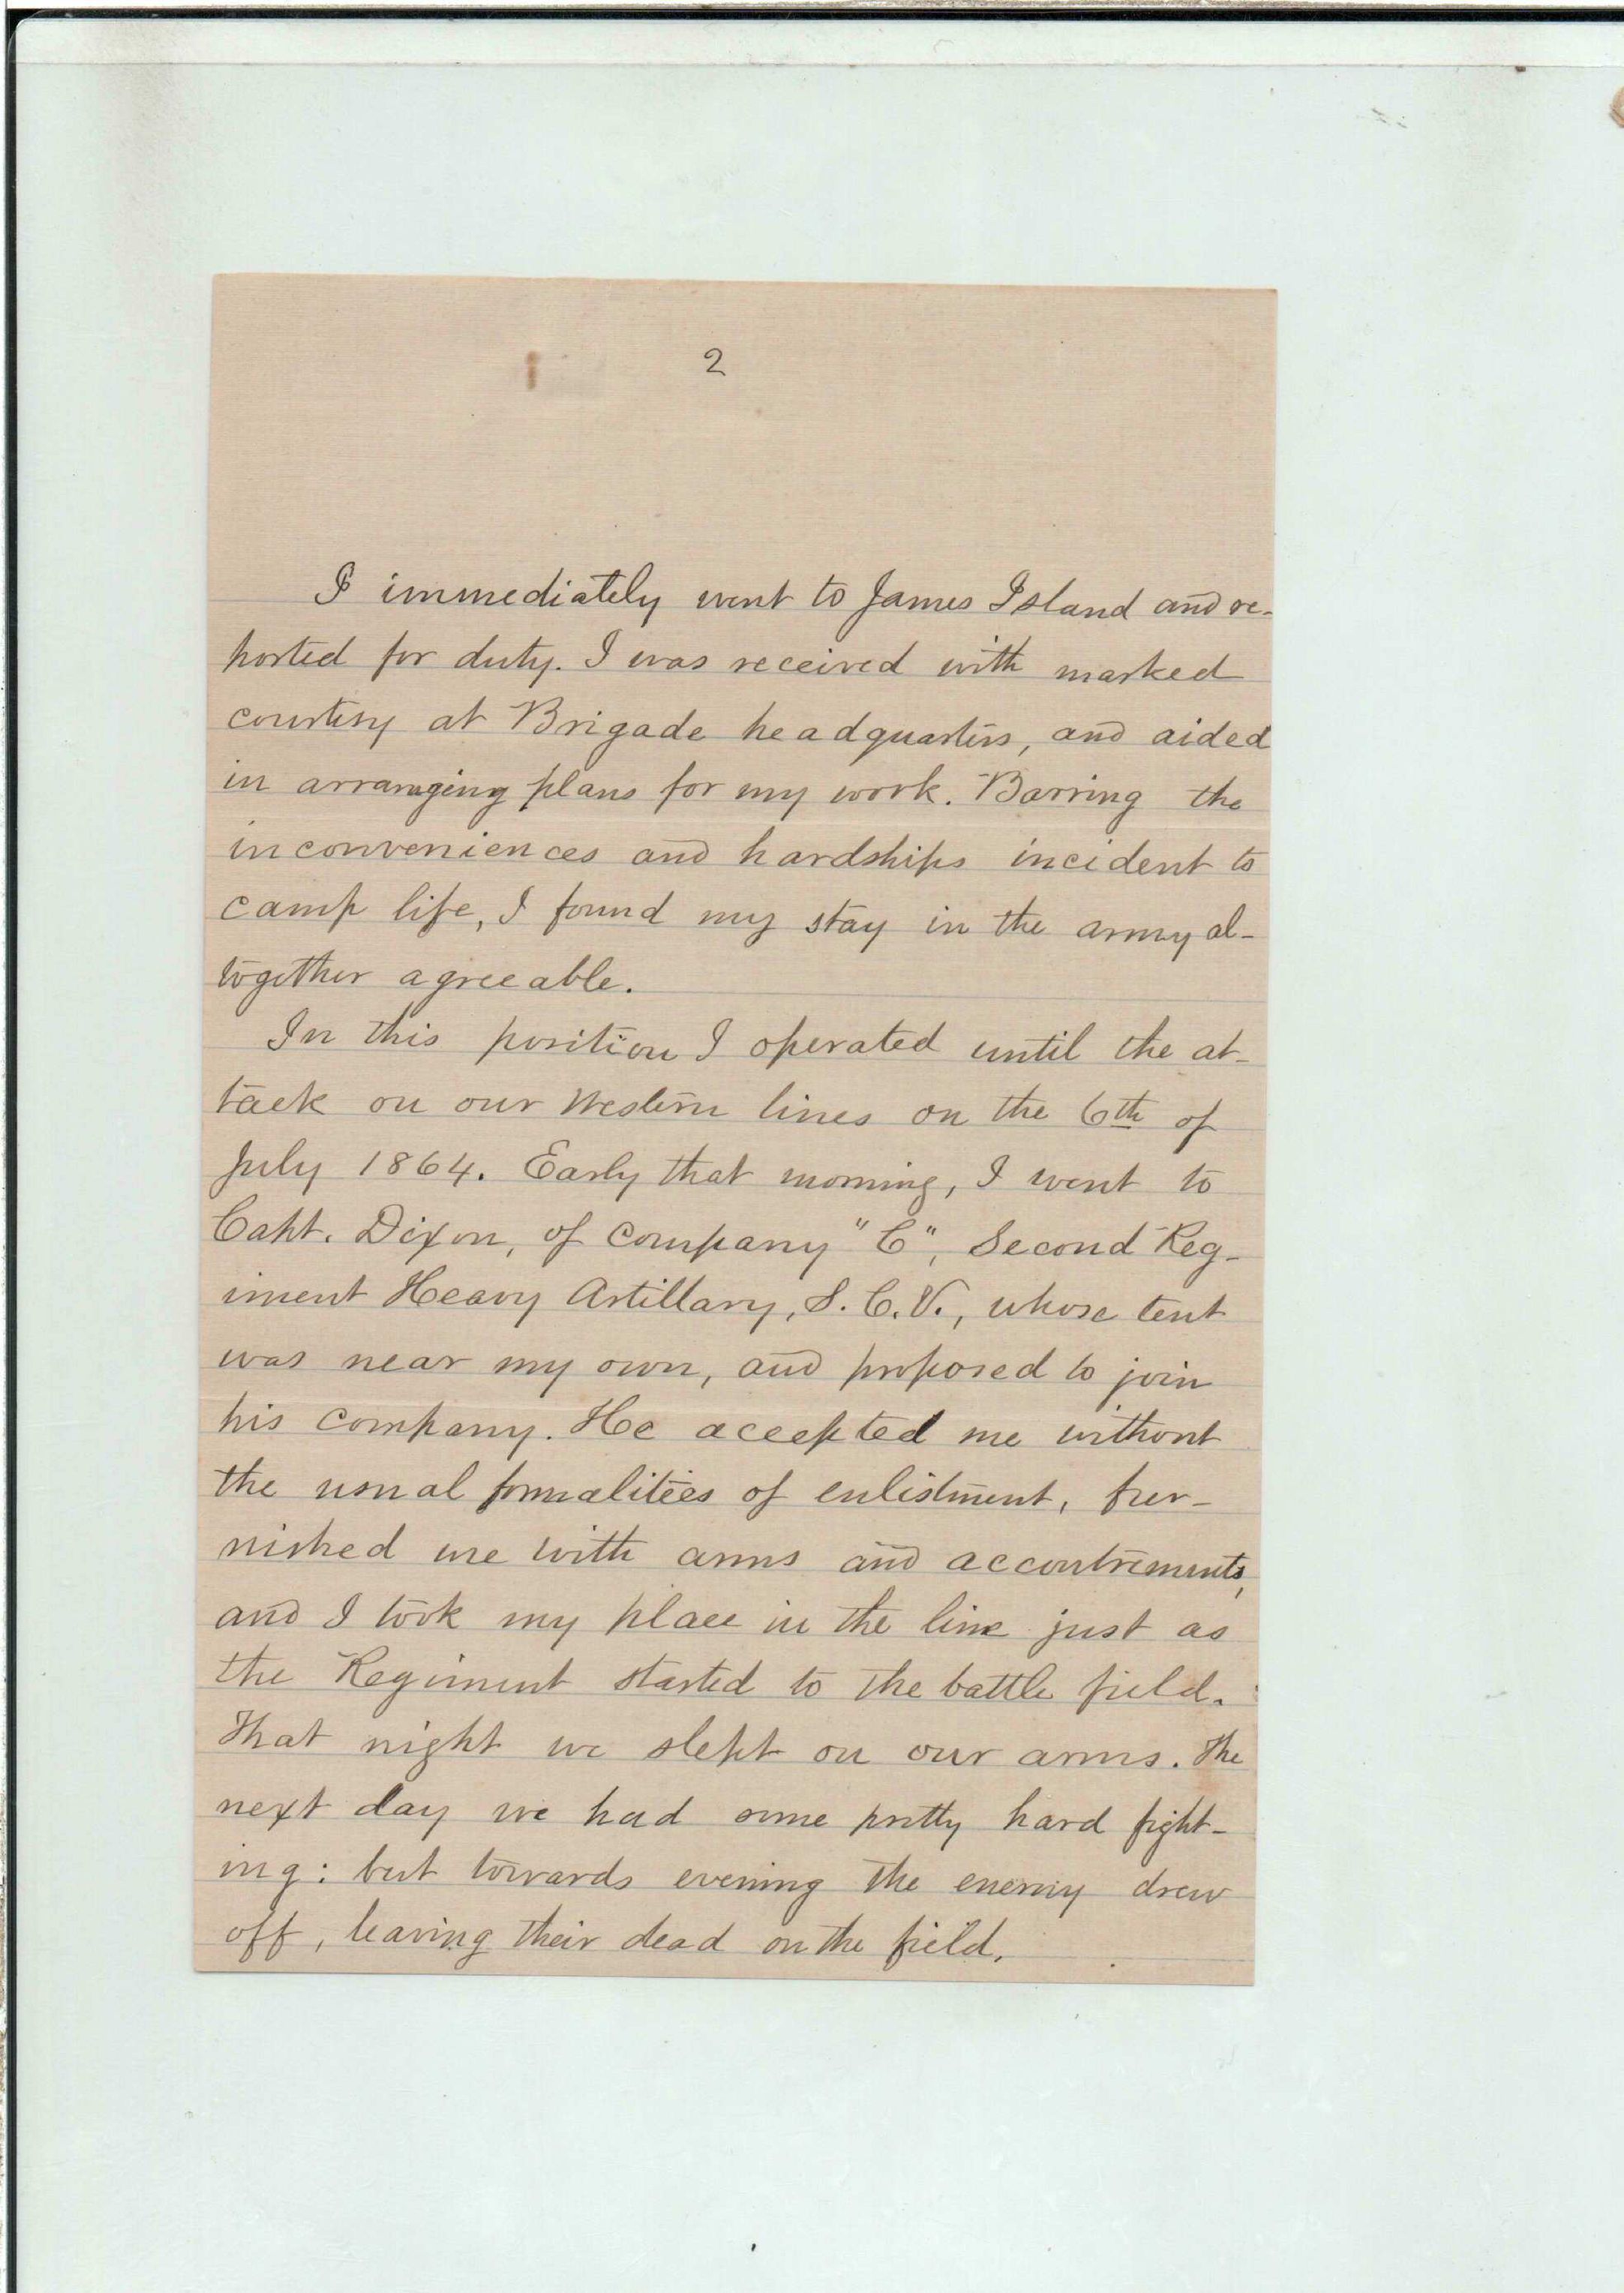 2
I immediately went to James Island and re-
ported for duty. I was received with marked
courtesy at Brigade headquarters, and aided
in arranging plans for my work. Barring the
inconveniences and hardships incident to
camp life, I found my stay in the army al-
together agreeable.
In this position I operated until the at-
tack on our Western lines on the 6th of
July 1864. Early that morning, I went to
Capt. Dixon, of Company "C", Second Reg-
iment Heavy Artillary, S. C. V., whose tent
was near my own, and proposed to join
his Company. He accepted me without
the usual formalities of enlistment, fur-
nished me with arms and accoutrements,
and I took my place in the line just as
the Regiment started to the battle field.
That night we slept on our arms. The
next day we had some pretty hard fight-
ing: but towards evening the enemy drew
off, leaving their dead on the field.